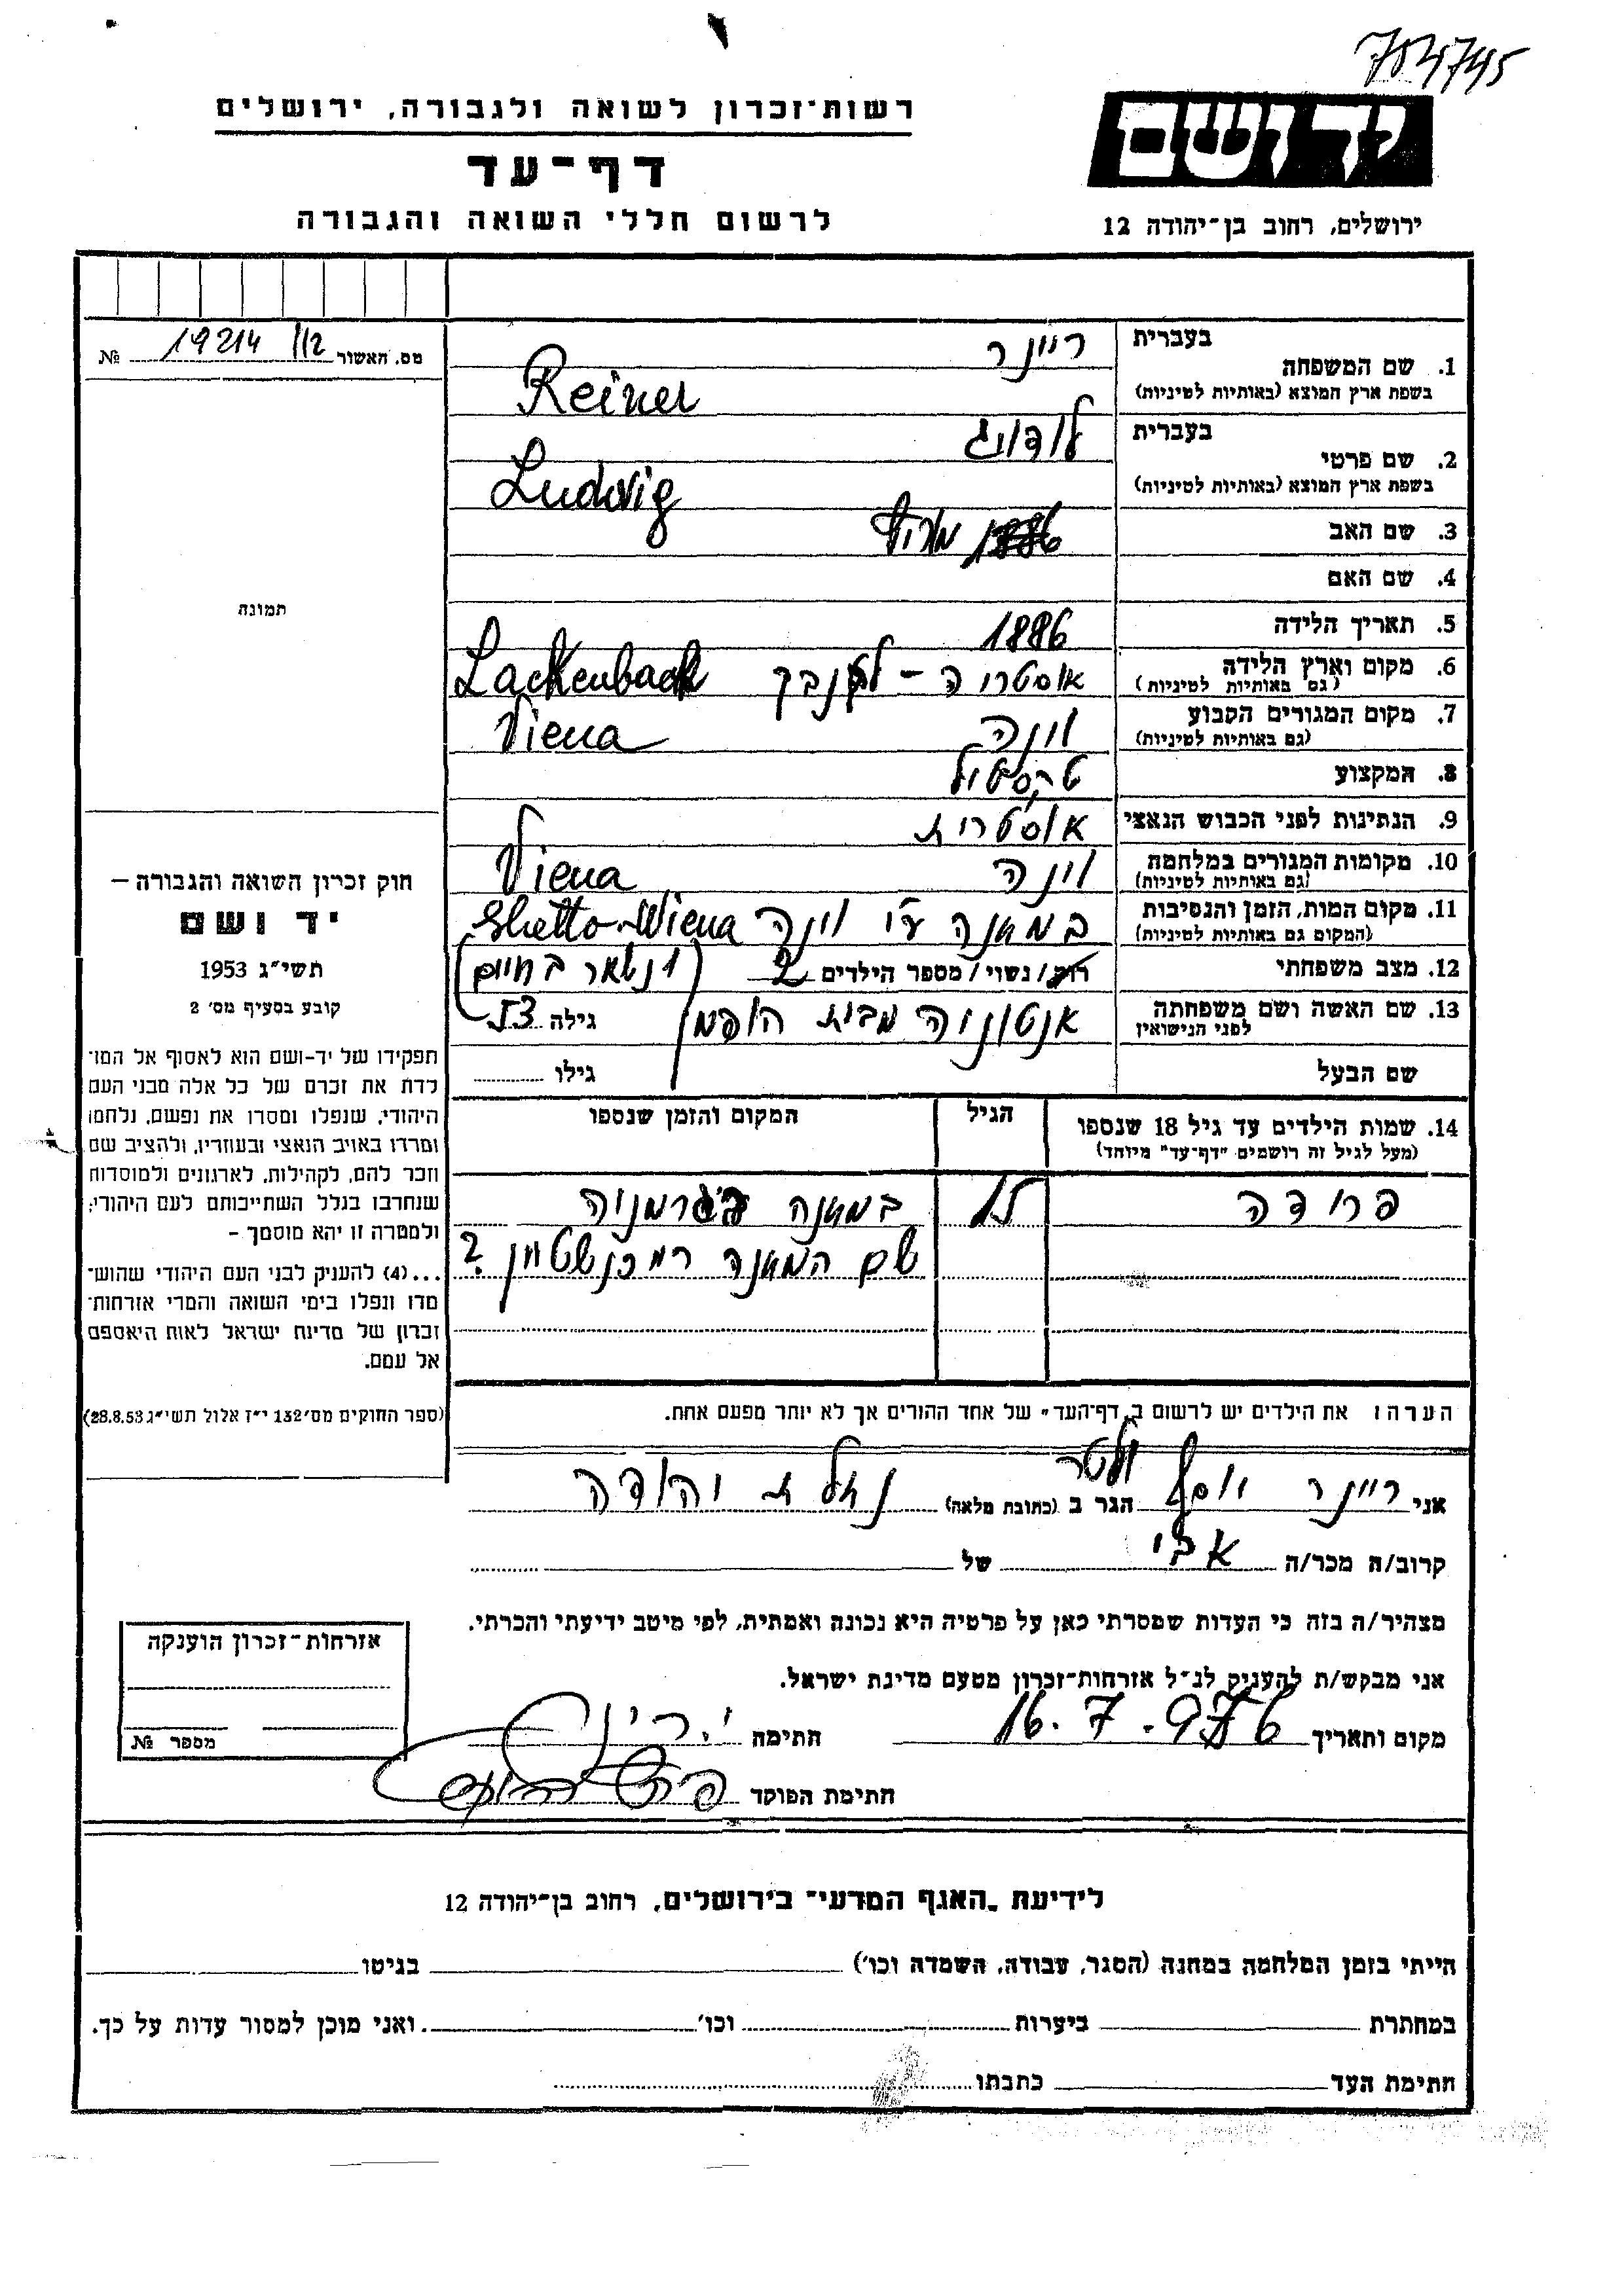 704745
רשות־זכרון לשואה ולגבורה, ירושלים
יד ושם
דף־עד
לרשום חללי השואה והגבורה
ירושלים, רחוב בן־יהודה 12
מס. האשור 19214 112 №
בעברית
1. שם המשפחה ריינר
בשפת ארץ המוצא (באותיות לטיניות) Reiner
בעברית
2. שם פרטי לודויג
בשפת ארץ המוצא (באותיות לטיניות) Ludwig
3. שם האב 1886
4. שם האם
5. תאריך הלידה 1886
6. מקום וארץ הלידה אוסטריה - לקנבך Lackenbach
(גם באותיות לטיניות)
7. מקום המגורים הקבוע וינה Viena
(גם באותיות לטיניות)
8. המקצוע טקסטיל
9. הנתינות לפני הכבוש הנאצי אוסטרית
10. מקומות המגורים במלחמה וינה Viena
(גם באותיות לטיניות)
11. מקום המות, הזמן והנסיבות במחנה ע״י וינה Ghetto-Wiena
(המקום גם באותיות לטיניות)
12. מצב משפחתי רוק/נשוי/מספר הילדים 2 (1 נשאר בחיים)
13. שם האשה ושם משפחתה אנטוניה מבית הופמן גילה 53
לפני הנישואין
שם הבעל גילו
14. שמות הילדים עד גיל 18 שנספו הגיל המקום והזמן שנספו
(מעל לגיל זה רושמים "דף־עד" מיוחד)
פרידה במחנה בגרמניה
שם המחנה ?
הערה: את הילדים יש לרשום ב„דף־העד" של אחד ההורים אך לא יותר מפעם אחת.
תמונה
חוק זכרון השואה והגבורה –
יד ושם
תשי״ג 1953
קובע בסעיף מס׳ 2
תפקידו של יד-ושם הוא לאסוף אל המו־
לדת את זכרם של כל אלה מבני העם
היהודי, שנפלו ומסרו את נפשם, נלחמו
ומרדו באויב הנאצי ובעוזריו, ולהציב שם
וזכר להם, לקהילות, לארגונים ולמוסדות
שנחרבו בגלל השתייכותם לעם היהודי;
ולמטרה זו יהא מוסמך –
...(4) להעניק לבני העם היהודי שהוש־
מדו ונפלו בימי השואה והמרי אזרחות־
זכרון של מדינת ישראל לאות היאספם
אל עמם.
(ספר החוקים מס׳ 132 י״ז אלול תשי״ג 28.8.53)
ולטר
אני ריינר יוסף הגר ב (כתובת מלאה) נחלת יהודה
קרוב/ה מכר/ה אבי של
מצהיר/ה בזה כי העדות שמסרתי כאן על פרטיה היא נכונה ואמתית, לפי מיטב ידיעתי והכרתי.
אני מבקש/ת להעניק לנ״ל אזרחות־זכרון מטעם מדינת ישראל.
מקום ותאריך 16.7.976 חתימה י. ריינר
חתימת הפוקד
אזרחות־זכרון הוענקה
מספר №
לידיעת „האגף המדעי" בירושלים, רחוב בן־יהודה 12
הייתי בזמן המלחמה במחנה (הסגר, עבודה, השמדה וכו׳) בגיטו
במחתרת ביערות וכו׳ ואני מוכן למסור עדות על כך.
חתימת העד כתבתו